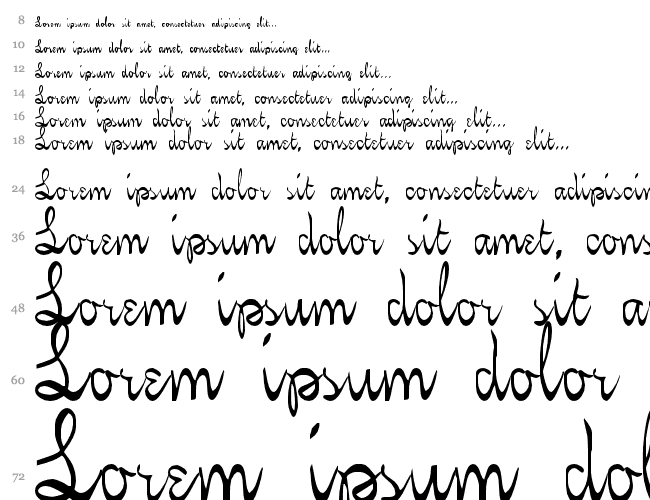 8 Lorem ipsum dolor sit amet, consectetuer adipiscing elit...
10 Lorem ipsum dolor sit amet, consectetuer adipiscing elit...
12 Lorem ipsum dolor sit amet, consectetuer adipiscing elit...
14 Lorem ipsum dolor sit amet, consectetuer adipiscing elit...
16 Lorem ipsum dolor sit amet, consectetuer adipiscing elit...
18 Lorem ipsum dolor sit amet, consectetuer adipiscing elit...
24 Lorem ipsum dolor sit amet, consectetuer adipiscin
36 Lorem ipsum dolor sit amet, cons
48 Lorem ipsum dolor sit a
60 Lorem ipsum dolor
72 Lorem ipsum do